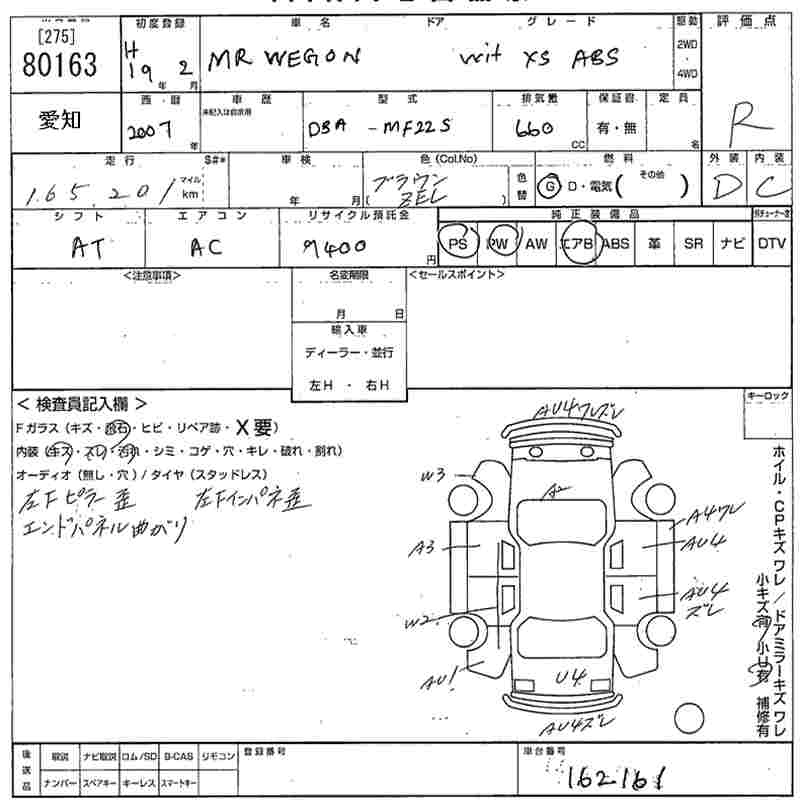 [275]
80163
初度登録
H 19年 2月
車名 ドア グレード
MR WEGON wit XS ABS
駆動
2WD
・
4WD
評価点
R
愛知
西・暦
2007年
車歴
未記入は自家用
型式
DBA - MF22S
排気量
660 CC
保証書
有・無
定員
名
走行 S#*
165,201 マイル km
車検
年 月
色(Col.No)
ブラウン
( ZEL )
色替
燃料
G D・電気( その他 )
外装
D
内装
C
シフト
AT
エアコン
AC
リサイクル預託金
9400 円
純正装備品
PS PW AW エアB ABS 革 SR ナビ DTV
<注意事項>
名変期限
月 日
<セールスポイント>
輸入車
ディーラー・並行
左H ・ 右H
< 検査員記入欄 >
Fガラス(キズ・飛石・ヒビ・リペア跡・X要)
内装(キズ・スレ・汚れ・シミ・コゲ・穴・キレ・破れ・割れ)
オーディオ(無し・穴)/タイヤ(スタッドレス)
左Fピラー歪 左Fインパネ歪
エンドパネル曲がり
キーロック
AU4ワレズレ
W3
A2
A4ワレ
A3
AU4
AU4
ズレ
W2
AU1
U4
AU4ズレ
ホイル・CPキズワレ/ドアミラーキズワレ
小キズ有 小U有 補修有
後送品
取説 ナビ取説 ロム/SD B-CAS リモコン
ナンバー スペアキー キーレス スマートキー
登録番号
車台番号
162161